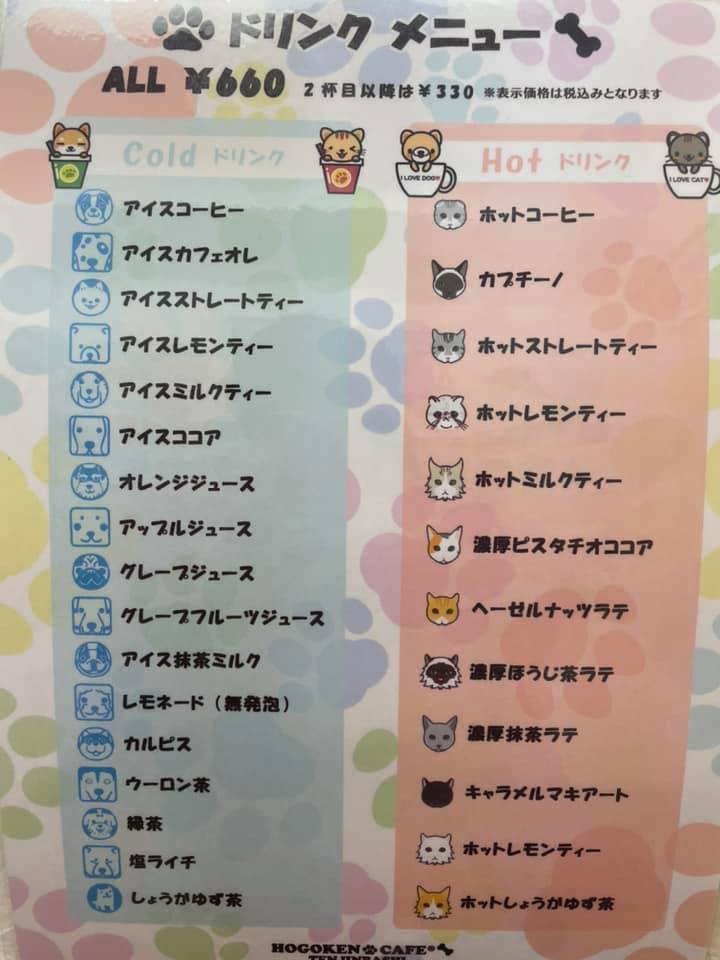 ドリンク メニュー
ALL ¥660 2杯目以降は¥330 ※表示価格は税込みとなります
Cold ドリンク
アイスコーヒー
アイスカフェオレ
アイスストレートティー
アイスレモンティー
アイスミルクティー
アイスココア
オレンジジュース
アップルジュース
グレープジュース
グレープフルーツジュース
アイス抹茶ミルク
レモネード（無発泡）
カルピス
ウーロン茶
緑茶
塩ライチ
しょうがゆず茶
I LOVE DOG♥
Hot ドリンク
I LOVE CAT♥
ホットコーヒー
カプチーノ
ホットストレートティー
ホットレモンティー
ホットミルクティー
濃厚ピスタチオココア
ヘーゼルナッツラテ
濃厚ほうじ茶ラテ
濃厚抹茶ラテ
キャラメルマキアート
ホットレモンティー
ホットしょうがゆず茶
HOGOKEN CAFE®
TENJINBASHI